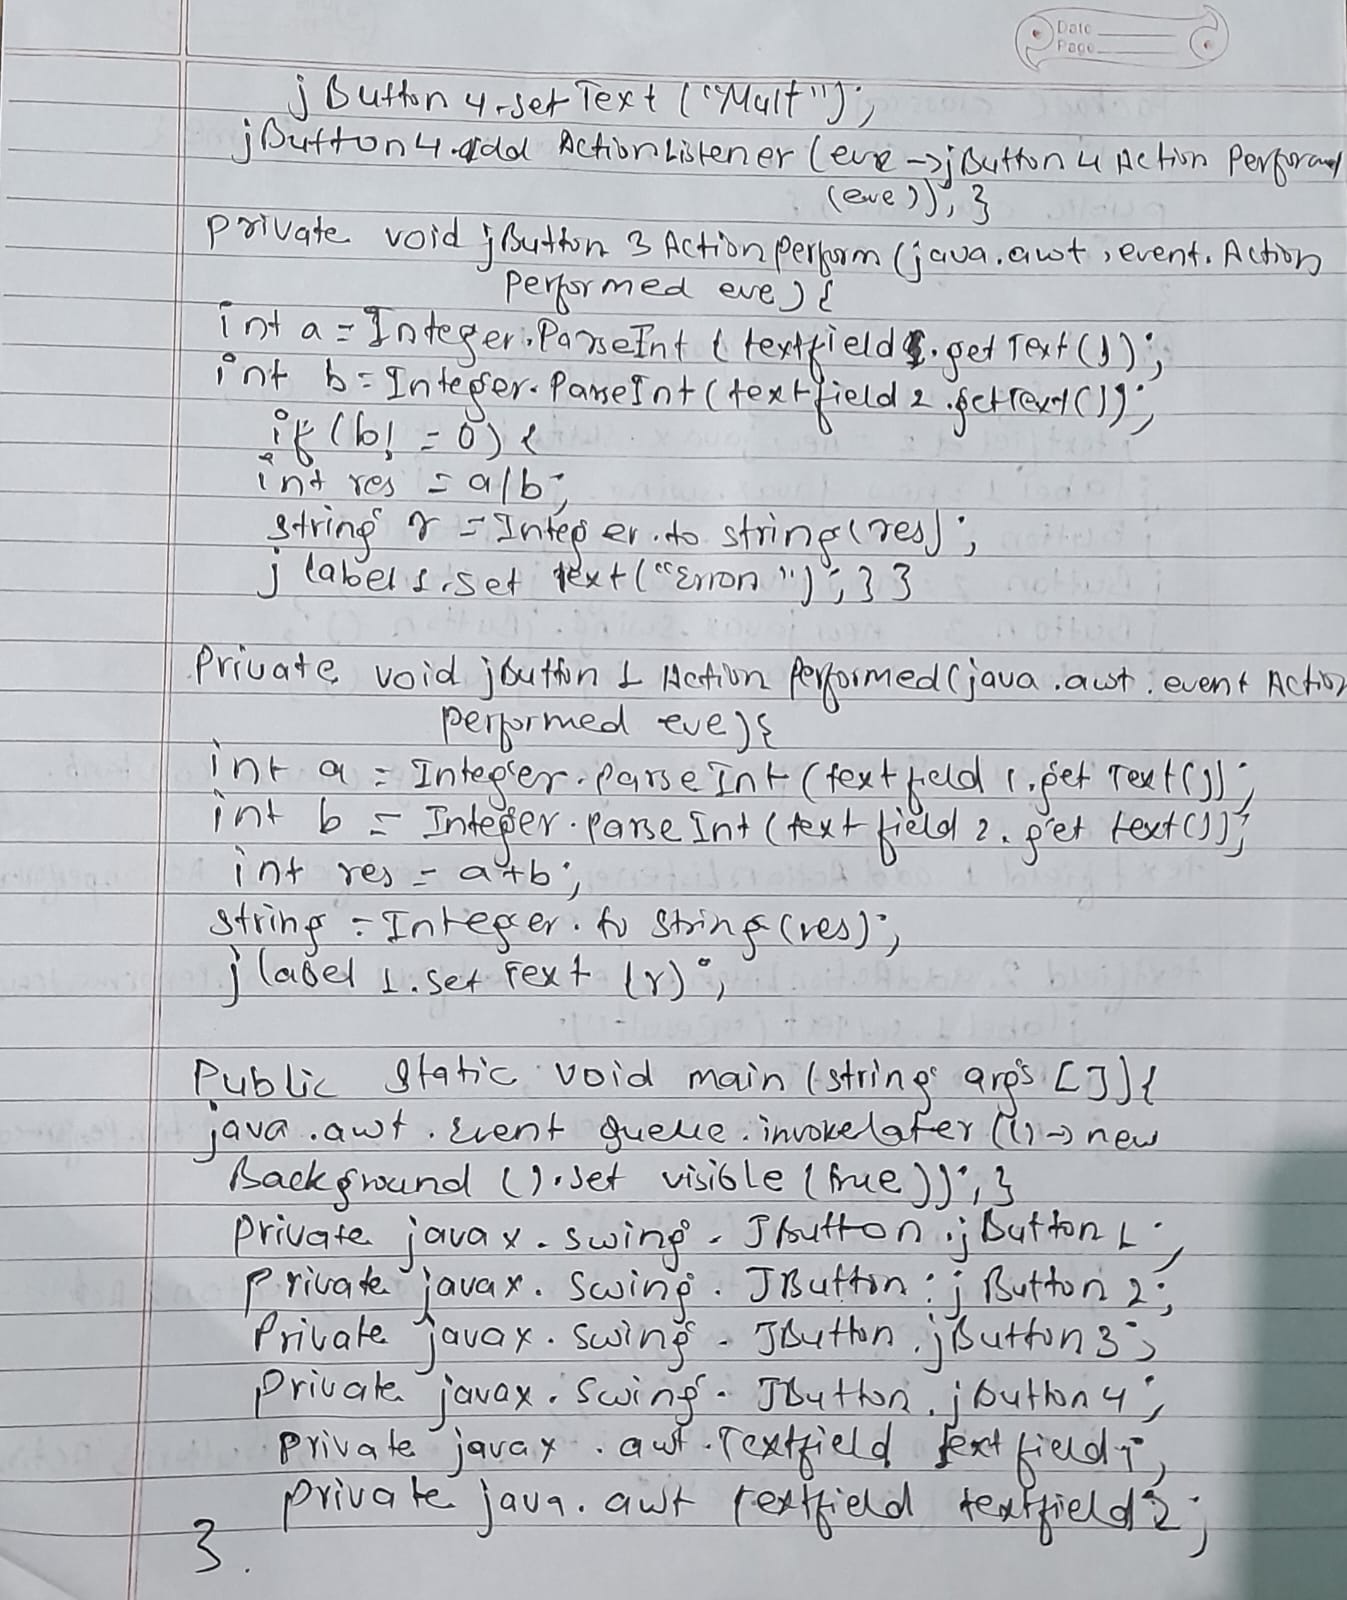 Date
Page
jButton4.setText("Mult");
jButton4.addActionListener(eve->jButton4ActionPerformed
(eve)); }
private void jButton3ActionPerform(java.awt.event.Action
performed eve) {
int a = Integer.ParseInt(textfield1.getText());
int b = Integer.ParseInt(textfield2.getText());
if (b! = 0) {
int res = a/b;
string r = Integer.to string(res);
jlabel1.set text("Error"); } }
Private void jButton1ActionPerformed(java.awt.event Action
performed eve){
int a = Integer.ParseInt(textfield1.getText());
int b = Integer.ParseInt(textfield2.get text());
int res = a+b;
string = Integer.to String(res);
jlabel1.setText(r);
Public static void main (string args []){
java.awt.Event queue.invokelater(()->new
Background().set visible(true)); }
Private javax.swing.JButton.jButton1;
Private javax.swing.JButton.jButton2;
Private javax.swing.JButton.jButton3;
Private javax.swing.JButton.jButton4;
private javax.awt.Textfield textfield1;
private java.awt textfield textfield2;
}.